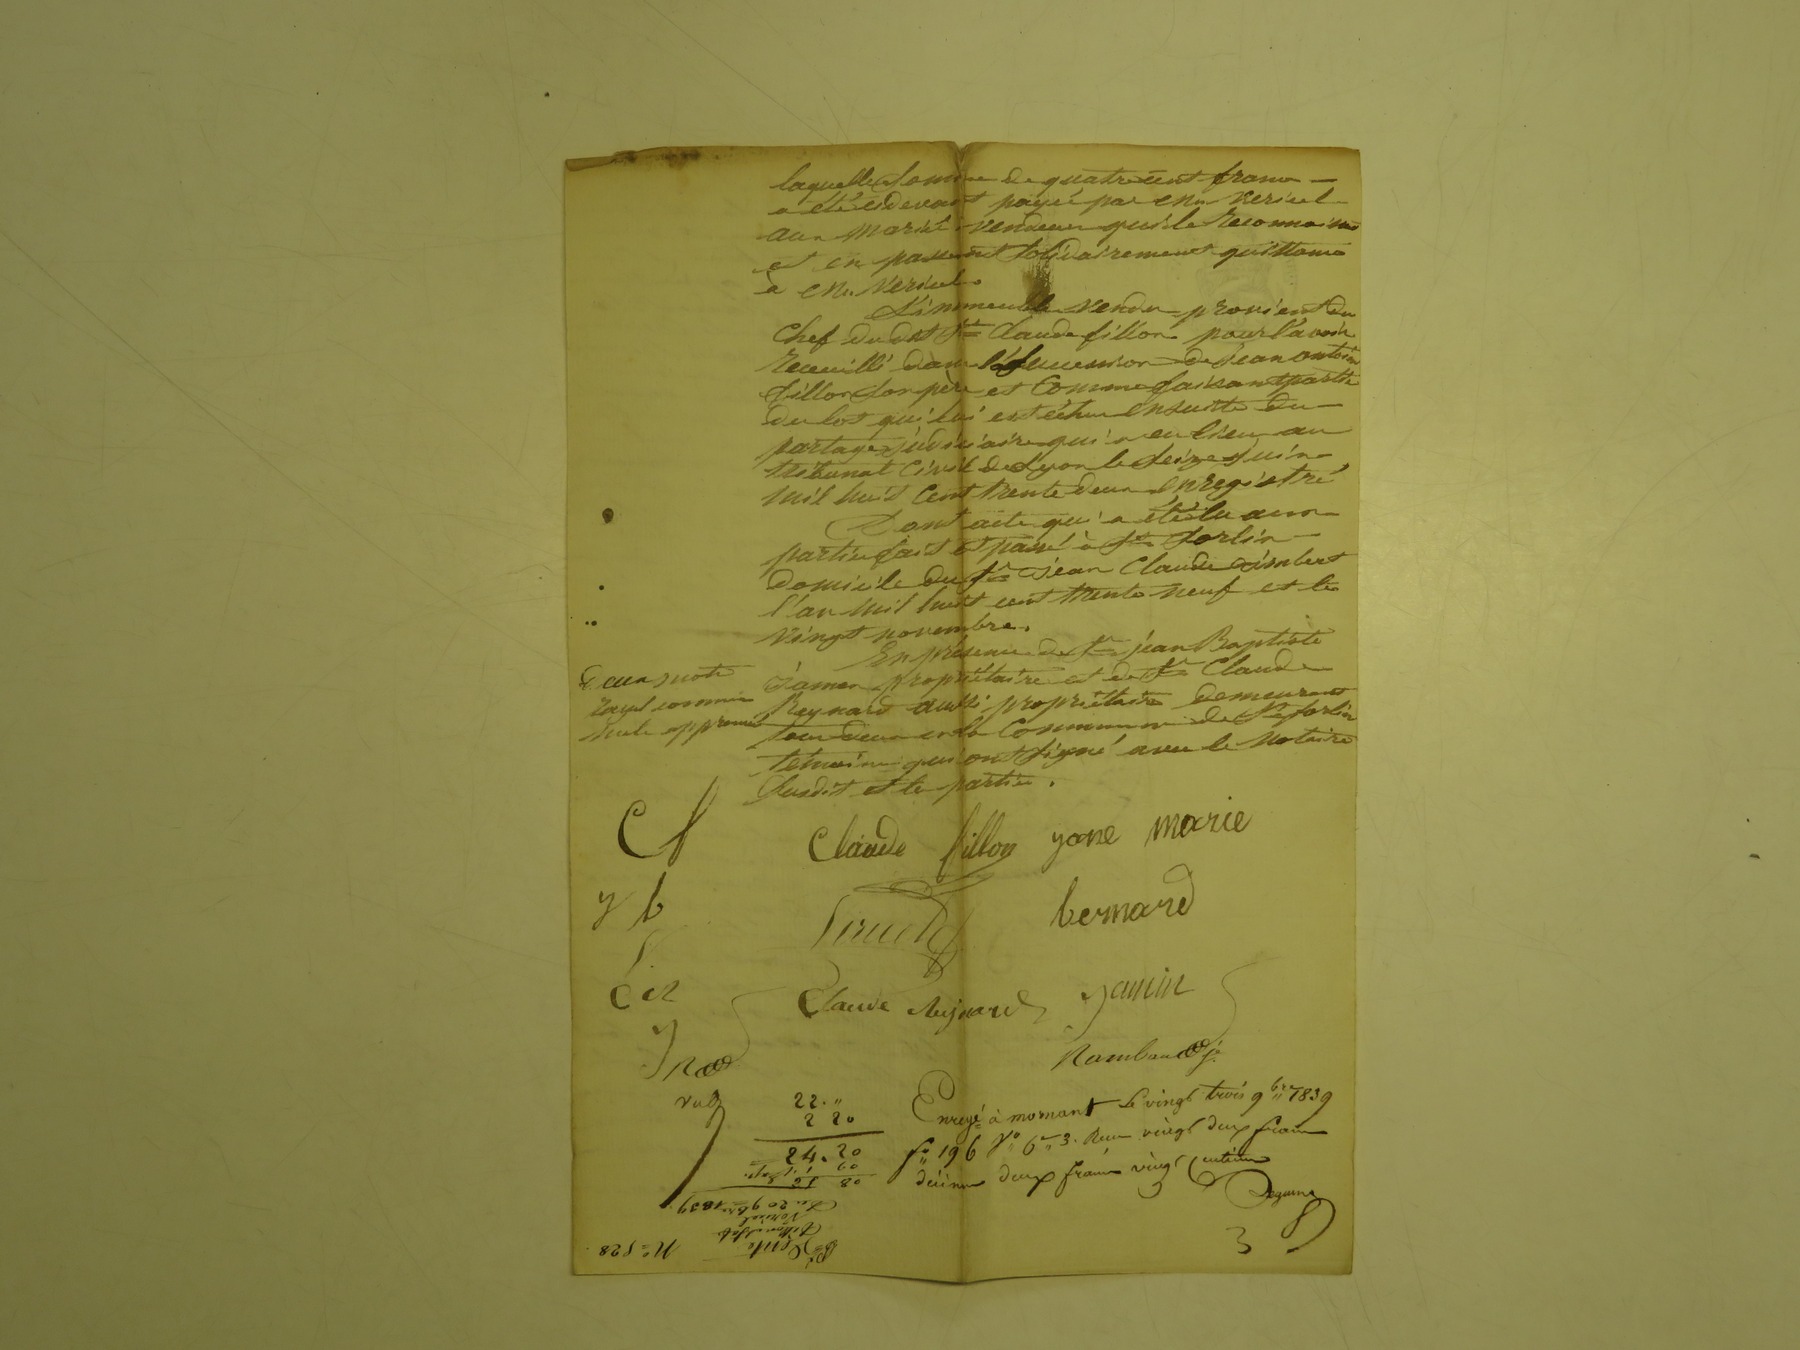 laquelle somme de quatre cent francs
a été cidevant payée par Mr. Vericel
aux mariés vendeurs qui le reconnaissent
et en passent solidairement quittance
à Mr. Vericel.
L'immeuble vendu provient du
Chef du dit Sr Claude fillon pour l'avoir
recueilli dans la succession de Jean antoine
fillon son père et comme faisant partie
du lot qui lui est échu ensuite du
partage judiciaire qui a eu lieu au
tribunal Civil de Lyon le seize Juin
mil huit Cent trente deux enregistré
Dont acte qui a été lu aux
parties fait et passé à St Sorlin
domicile du Sr jean Claude
l'an mil huit cent trente neuf et le
vingt novembre.
En présence de Sr jean Baptiste
propriétaire et de Sr Claude
Reynard aussi propriétaire demeurant
tous deux en la Commune de St Sorlin
témoins qui ont signé avec le notaire
susdit et les parties.
mots
rayés comme
nuls approuvés
C f
Claude fillon yane marie
y b
bernard
C R
Claude Reynard
Rambaud
22. "
2 20
24. 20
Enregé à mornant le vingt trois 9bre 1839
fo 196 Vo Ce 3. Reçu vingt deux francs
décime deux francs vingt centimes
3
Du 20 9bre 1839
Vericel
Vente
No 528